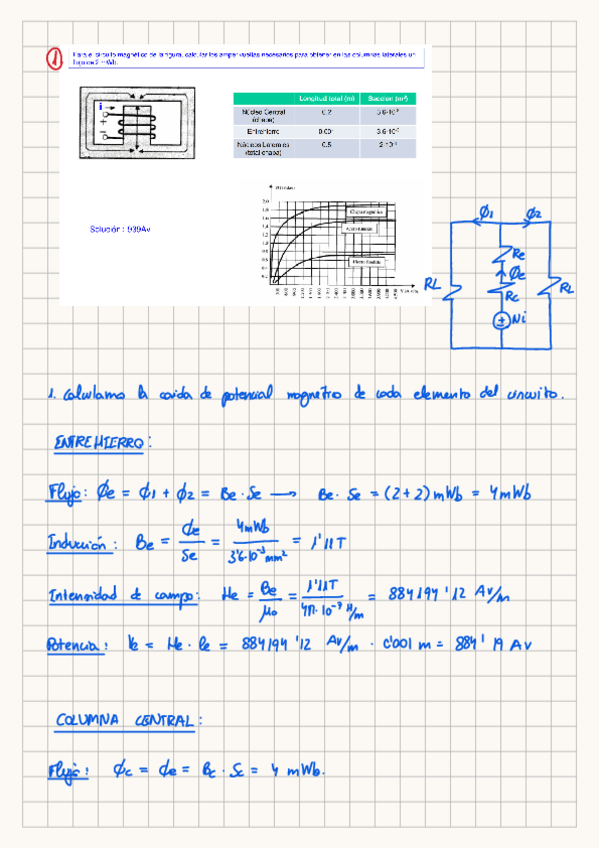 1
Para el circuito magnético de la figura, calcular los amper-vueltas necesarios para obtener en las columnas laterales un
flujo de 2 mWb.
i
+
−
Longitud total (m) Sección (m²)
Núcleo Central (chapa) 0.2 3.6·10⁻³
Entrehierro 0.001 3.6·10⁻³
Núcleos Laterales (total chapa) 0.5
Solución : 939Av
ϕ1 ϕ2
Re
ϕe
RL Rc RL
± Ni
1. Calculamos la caida de potencial magnetico de cada elemento del circuito.
ENTREHIERRO:
Flujo: ϕe = ϕ1 + ϕ2 = Be · Se → Be · Se = (2+2) mWb = 4 mWb
Inducción: Be = ϕe / Se = 4mWb / 3'6·10⁻³ mm² = 1'11 T
Intensidad de campo: He = Be / μo = 1'11T / 4π·10⁻⁷ H/m = 884194'12 Av/m
Potencia: Ve = He · le = 884194'12 Av/m · 0'001 m = 884'19 Av
COLUMNA CENTRAL:
Flujo: ϕc = ϕe = Bc · Sc = 4 mWb.